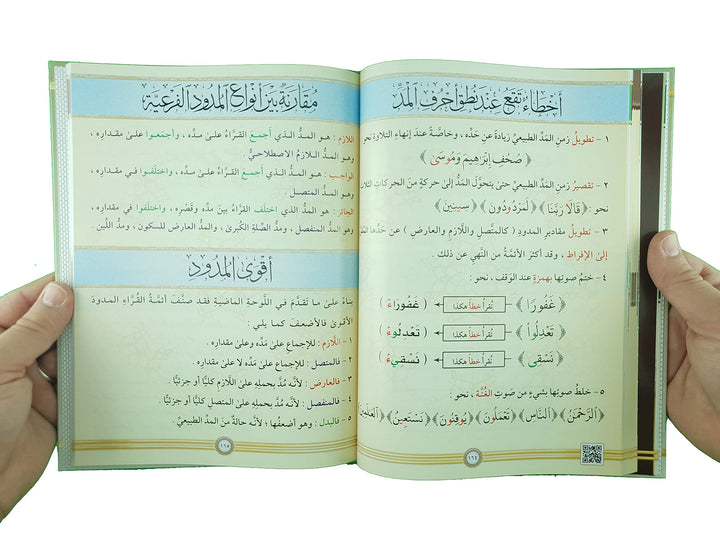 أخطاء تقع عند نطق أحرف المد
١ - تطويل زمنِ المَدِّ الطبيعيِّ زيادةً عن حَدِّه، وخاصَّةً عند إنهاءِ التلاوةِ نحو
﴿ صُحُفِ إِبْرَاهِيمَ وَمُوسَىٰ ﴾
٢ - تقصيرُ زمنِ المَدِّ الطبيعيِّ حتى يتحوَّلَ المَدُّ إلى حركةٍ منَ الحركاتِ الثلاث
نحو : ﴿ قَالَا رَبَّنَا ﴾ ﴿ لَمَرْدُودُونَ ﴾ ﴿ سِنِينَ ﴾
٣ - تطويلُ مقاديرِ المدودِ ( كالمتَّصِلِ واللَّازمِ والعارضِ ) عن حَدِّها
إلى الإفراطِ ، وقد أكثرَ الأئمَّةُ منَ النَّهيِ عن ذلك .
٤ - ختمُ صوتِها بهمزةٍ عندَ الوَقفِ ، نحو :
﴿ غَفُورًا ﴾ تُقرأ خطأً هكذا ( غَفُوراءْ )
﴿ تَعْدِلُواْ ﴾ تُقرأ خطأً هكذا ( تَعْدِلُوءْ )
﴿ نَسْقِى ﴾ تُقرأ خطأً هكذا ( نَسْقِيءْ )
٥ - خلطُ صوتِها بشيءٍ من صَوتِ الغُنَّةِ ، نحو :
﴿ ٱلرَّحْمَٰنُ ﴾ ﴿ ٱلنَّاسِ ﴾ ﴿ تَعْمَلُونَ ﴾ ﴿ يُوقِنُونَ ﴾ ﴿ نَسْتَعِينُ ﴾ ﴿ ٱلْعَٰلَمِينَ
١٦٤
مقارنة بين أنواع المدود الفرعية
اللازم : هو المَدُّ الذي أجمعَ القرَّاءُ علىٰ مدِّه ، وأجمَعوا علىٰ مقدارِه ،
وهو المَدُّ اللازمُ الاصطلاحيُّ .
الواجب : هو المَدُّ الذي أجمعَ القرَّاءُ علىٰ مَدِّه ، واختلَفوا في مقدارِه ،
وهو المَدُّ المتصل .
الجائز : هو المَدُّ الذي اختلَف القرَّاءُ بينَ مَدِّه وقَصْرِه ، واختلَفوا في مقدارِه ،
وهو المَدُّ المنفصل ، ومَدُّ الصِّلةِ الكُبرىٰ ، والمَدُّ العارض للسكون ، ومدُّ اللِّين .
أقوى المدود
بناءً علىٰ ما تقدَّمَ في اللَّوحةِ الماضيةِ فقد صنَّفَ أئمَّةُ القُرَّاءِ المدودَ
الأقوىٰ فالأضعفَ كما يلي :
١ - اللَّازِم : للإجماعِ علىٰ مَدِّه وعلىٰ مقدارِه .
٢ - فالمتصل : للإجماعِ علىٰ مَدِّه لا علىٰ مقدارِه .
٣ - فالعارض : لأنَّه مُدَّ بحملِه علىٰ اللَّازمِ كليًّا أو جزئيًّا .
٤ - فالمنفصل : لأنَّه مُدَّ بحملِه علىٰ المتصلِ كليًّا أو جزئيًّا .
٥ - فالبدل : وهو أضعفُها ؛ لأنَّه حالةٌ منَ المَدِّ الطبيعيِّ .
١٦٥